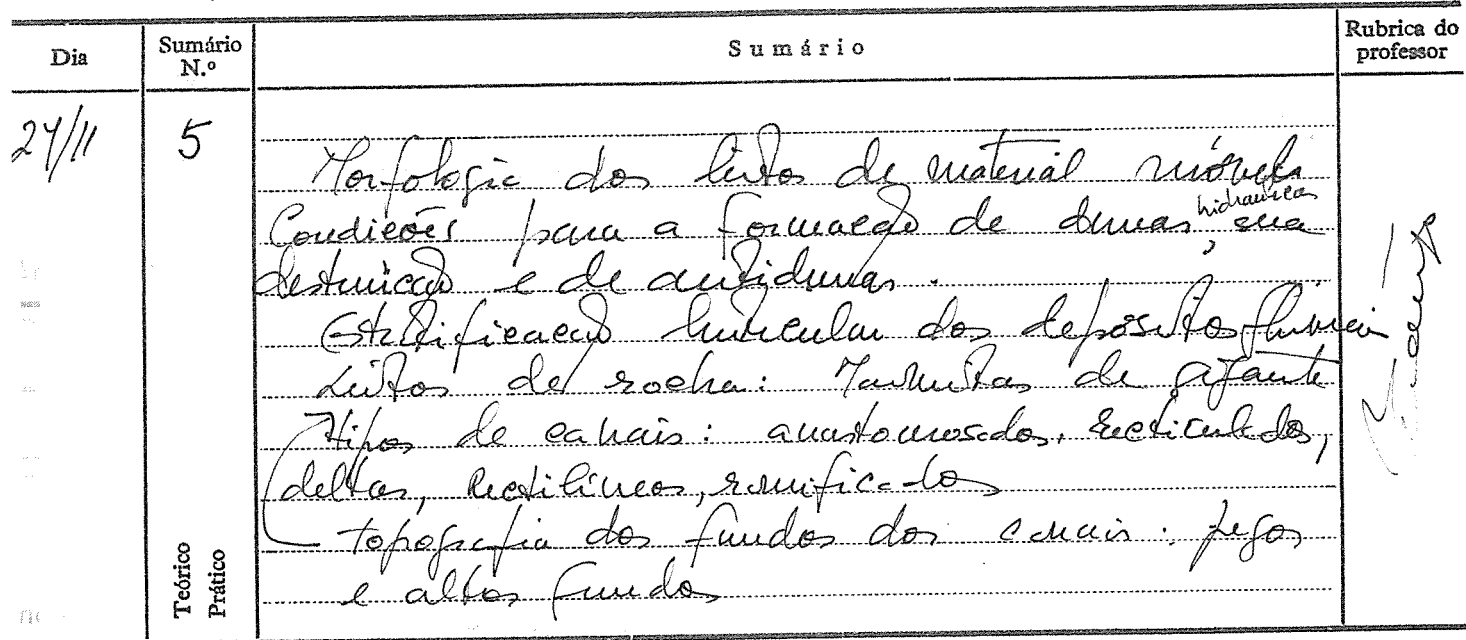 Dia
Sumário N.º
Sumário
Rubrica do professor
24/11
5
Morfologia dos leitos de material móvel
Condições para a formação de dunas hidraulicas, sua
destruição e de antidunas.
Estratificação lenticular dos depósitos fluviais
Leitos de rocha: Marmitas de gigante
Tipos de canais: anastomosados, recticulados,
deltas, rectilíneos, ramificados
topografia dos fundos dos canais: pegos
e altos fundos
Teórico
Prático